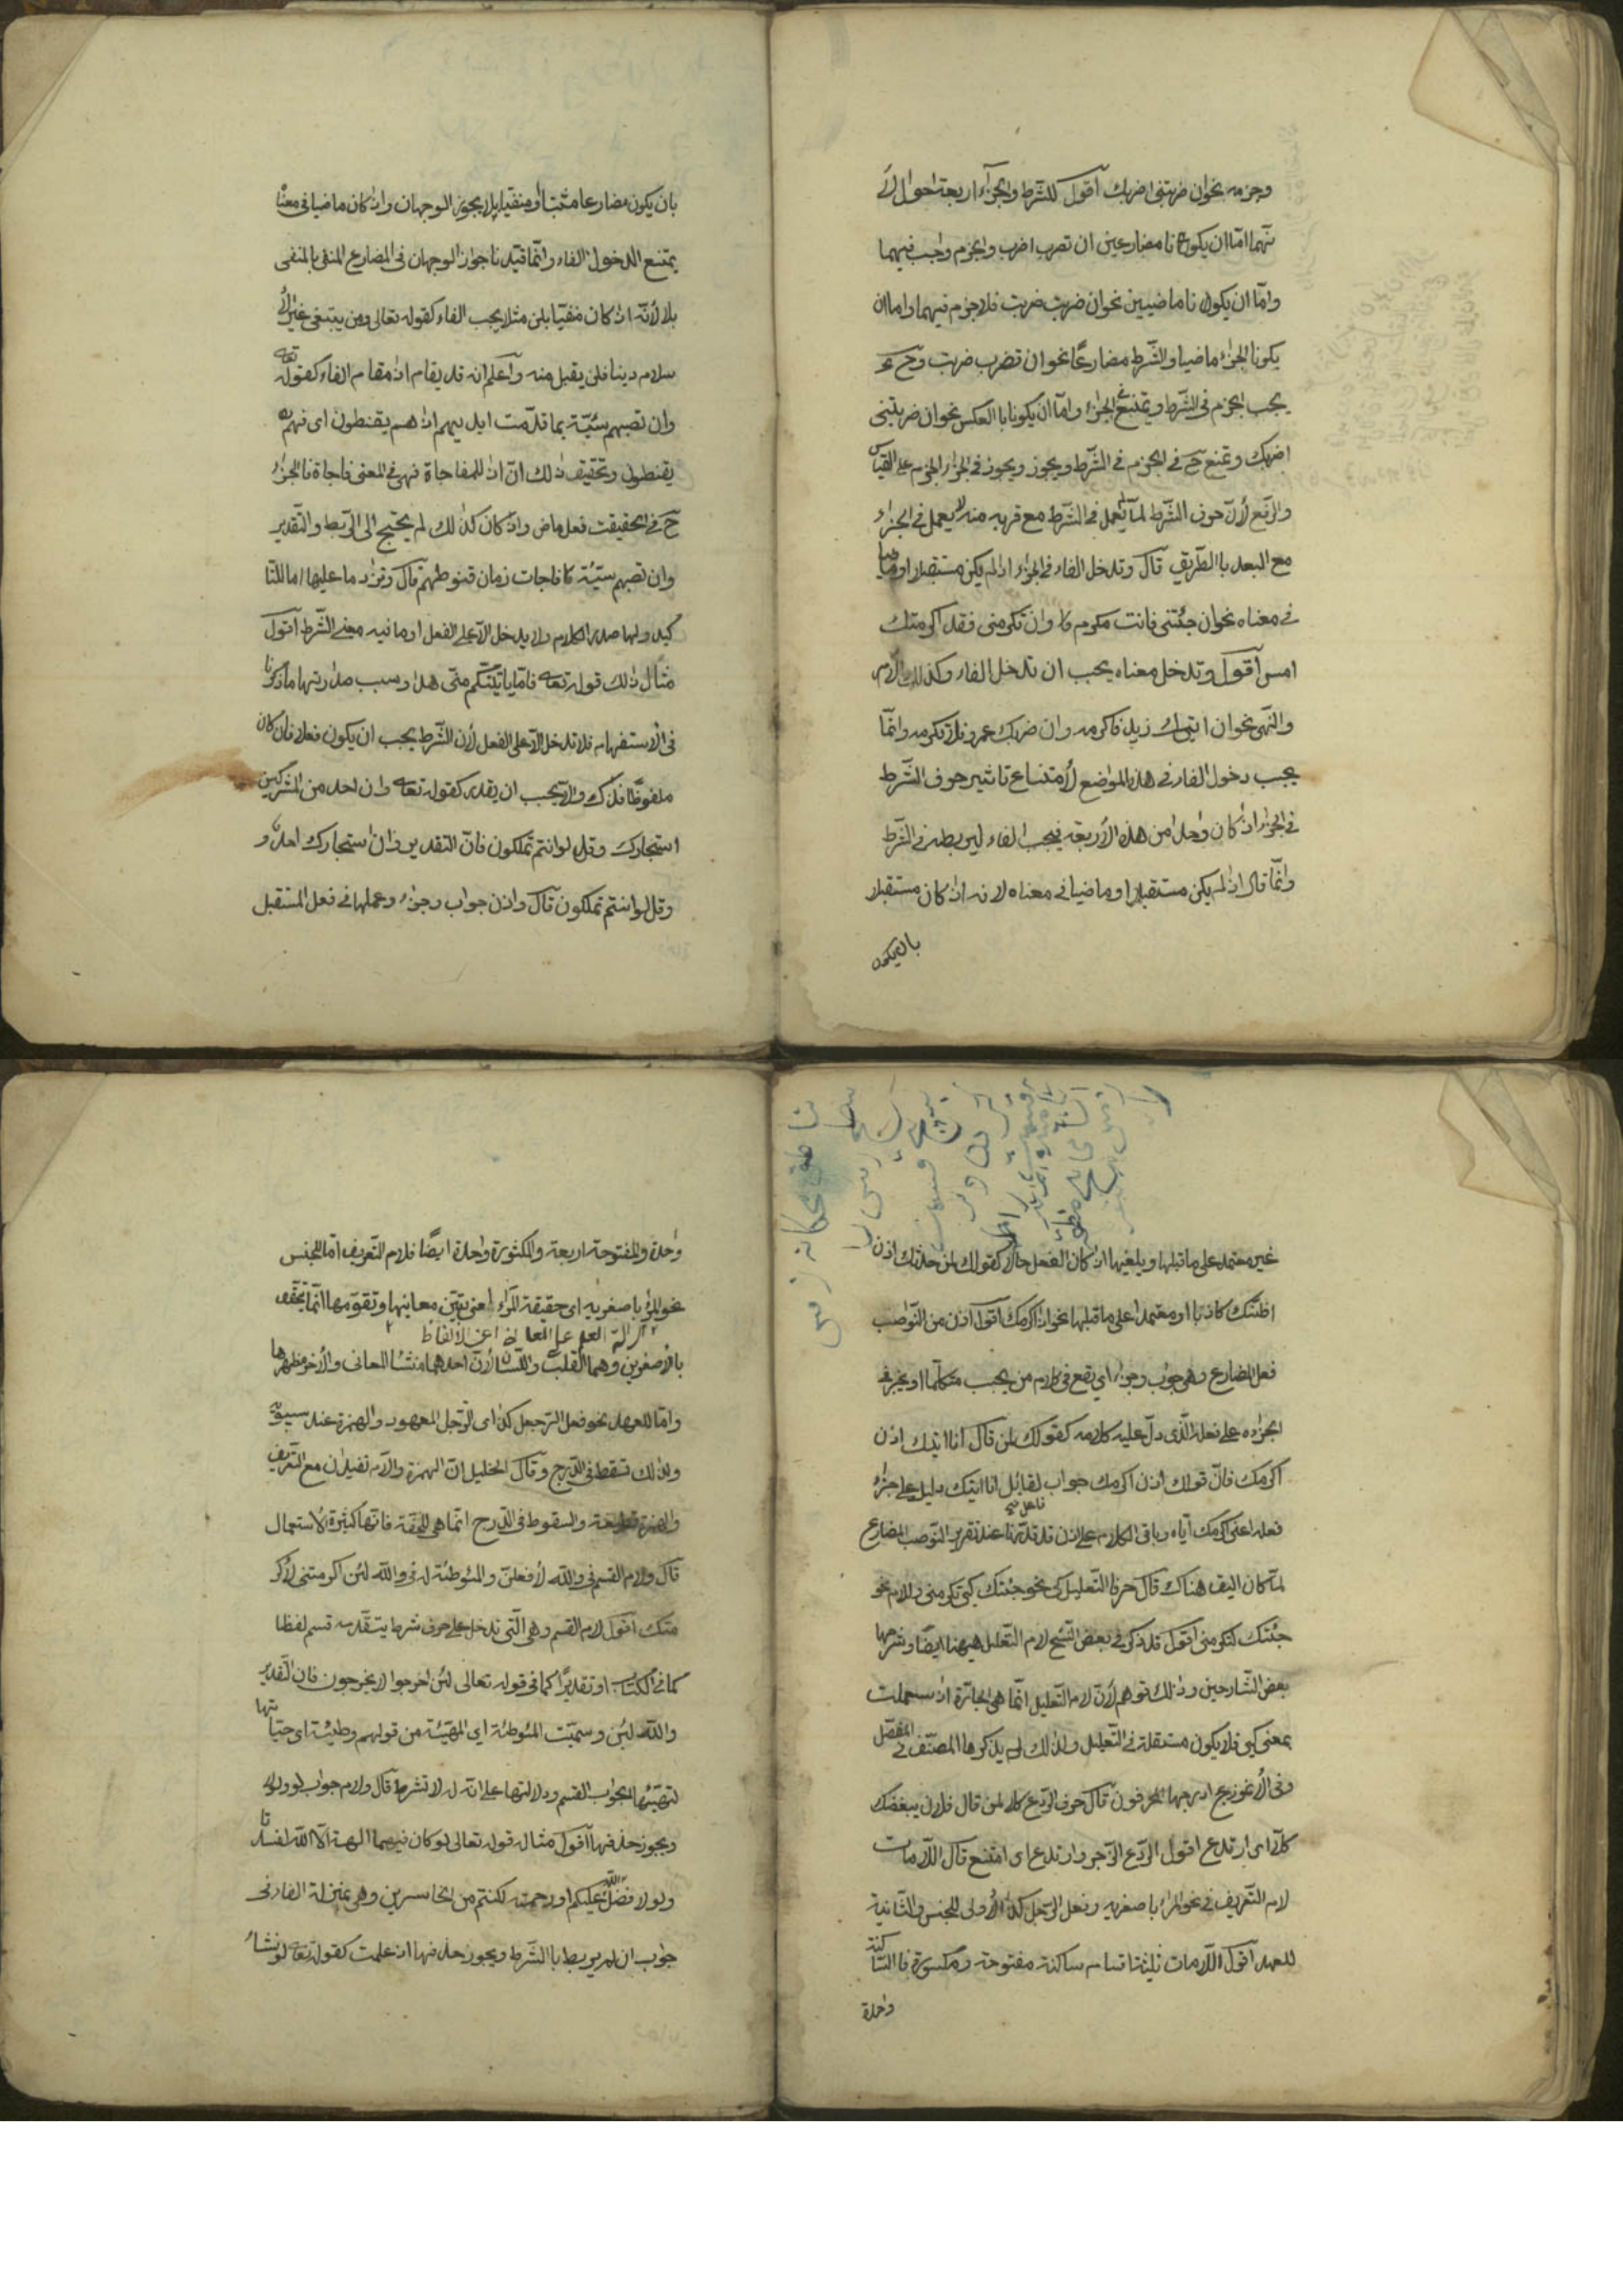 وجزمه نحو ان ضربتنى اضربك اقول للشرط والجزاء اربعة احوال لأ
نهما امّا ان يكونا مضارعين ان تضرب اضرب والجزم واجب فيهما
وامّا ان يكونا ماضيين نحو ان ضربت ضربت فلا جزم فيهما واما ان
يكونا الجزاء ماضيا والشرط مضارعًا نحو ان تضرب ضربت وح
يجب الجزم فى الشرط ويمتنع فى الجزاء وامّا ان يكونا بالعكس نحو ان ضربتنى
اضربك ويمتنع ح فى الجزم فى الشرط ويجوز ويجوز فى الجزاء الجزم على القياس
والرّفع لأنّ حرف الشرط لمّا لم يعمل فى الشرط مع قربه منه لا يعمل فى الجزاء
مع البعد باالطّريق قال وتدخل الفاء فى الجزاء اذا لم يكن مستقبلا او ماضيا
فى معناه نحو ان جئتنى فانت مكرم وان تكرمنى فقد اكرمتك
امس اقول وتدخل معناه يجب ان تدخل الفاء وكذلك الامر
والنّهى نحو ان اتيك زيد فاكرمه وان ضربك عمرو فلا تكرمه وانّما
يجب دخول الفاء فى هذه المواضع لأمتناع تاثير حرف الشّرط
فى الجزاء اذا كان واحدا من هذه الأربعة فيجب الفاء ليربطه فى الشرط
وانّما قال اذا لم يكن مستقبلا او ماضيا فى معناه لانه اذا كان مستقبلا
بان يكون
بان يكون مضارعا مثبتا او منفيا بلا يجوز الوجهان واذا كان ماضيا فى معناه
يمتنع الدخول الفاء وانّما قيّدنا جواز الوجهان فى المضارع المنفى بالمنفى
بلا لأنّه اذا كان منفيّا بلن مثلا يجب الفاء كقوله تعالى ومن يبتغى غير الأ
سلام دينا فلن يقبل منه واعلم انه قد يقام اذا مقام الفاء كقوله تعالى
وان تصبهم سيّئة بما قدّمت ايديهم اذا هم يقنطون اى فهم
يقنطون وتحقيق ذلك انّ اذا للمفاجاة فهى فى المعنى فاجاة فالجزاء
ح فى الحقيقت فعل ماض واذا كان كذلك لم يحتج الى الرّبط والتّقدير
وان تصبهم سيّئة فاجات زمان قنوطهم قال وتزاد ما عليها اما للتا
كيد ولها صدر الكلام ولا يدخل الّا على الفعل او ما فيه معنى الشّرط اقول
مثال ذلك قوله تعالى فامّا ياتينّكم منّى هدا وسبب صدارتها ما ذكرنا
فى الأستفهام فلا تدخل الّا على الفعل لأن الشّرط يجب ان يكون فعلا فان كان
ملفوظًا فذاك والّا يجب ان يقدر كقوله تعالى وان احد من المشركين
استجارك وقل لو انتم تملكون فانّ التقدير وان استجارك احد و
وقل لو انتم تملكون قال واذن جواب وجزاء وعملها فى فعل المستقبل
غير معتمد على ما قبلها ويلغيها اذا كان الفعل حالا كقولك لمن حدثك اذن
اظنّك كاذبا او معتمدا على ما قبلها نحو انا اكرمك اقول اذن من النّواصب
فعل المضارع وهى جواب وجزاء اى يقع فى كلام من يجيب متكلّما او يخبر فى
الجزاءه على فعله الّذى دلّ عليه كلامه كقولك لمن قال انا اتيك اذن
اكرمك فانّ قولك اذن اكرمك جواب لقائل انا اتيك دليل على جزاء
فعله اعنى اكرمك آيّاه وباقى الكلام على اذن قد قدّمنا عند تقرير النّوصب المضارع
لمّا كان اليق هناك قال حرفا التّعليل كى نحو جئتك كى تكرمنى واللام نحو
جئتك لتكرمنى اقول قد ذكر فى بعض النّسخ لام التّعليل ههنا ايضًا وشرحها
بعض الشّارحين وذلك توهم لأنّ لام التّعليل انّما هى الجارّة اذا استعملت
بمعنى كى فلا يكون مستقلة فى التّعليل ولذلك لم يذكرها المصنّف فى المفصّل
وفى الأنموزج ادرجها المحرفون قال حرف الرّدع كلا لمن قال فلان يبغضك
كلّا اى ارتدع اقول الرّدع الزّجر وارتدع اى امتنع قال اللّامات
لام التّعريف فى نحو المرء باصغريه وفعل الرّجل كذا الأولى للجنس والثّانية
للعهد اقول اللّامات ثلثة اقسام ساكنة مفتوحة ومكسورة فاالسّاكنة
واحدة
واحدة والمفتوحة اربعة والمكثورة واحدة ايضًا فلام التّعريف امّا للجنس
نحو المرء باصغريه اى حقيقة المرء اعنى تبيّن معانيها وتقوّمها انّما يتحقق
بالأصغرين وهما القلب واللّسان لأنّ احدهما منشا المعانى والأخر مظهرها
وامّا للعهد نحو فعل الرّجعل كذا اى الرّجل المعهود والهمزة عند سيبويه
ولذلك تسقط فى الدّرج وقال الخليل انّ الهمزة والّام تفيدان مع التعريف
والهمزة قطعة والسقوط فى الدّرج انّما هى للخفّة فانّها كثيرة الأستعمال
قال ولام القسم فى والله لأفعلنّ والموطئة له فى والله لئن اكرمتنى لأكر
متك اقول لام القسم وهى الّتى تدخل على حرف شرط يتقّدمه قسم لفظا
كما فى الكتاب او تقديرًا كما فى قوله تعالى لئن اخرجوا لا يخرجون فان التّقدير
والله لئن وسمّيت الموطئة اى المهيّئة من قولهم وطيئة اى هيّاتها
لتهيّئها لجواب القسم ودلالتها على انّه له لا تشرط قال ولام جواب لو ولولا
ويجوز حذفها اقول مثاله قوله تعالى لو كان فيهما الهة الّا الله لفسدتا
ولولا فضل الله عليكم ورحمته لكنتم من الخاسرين وهى بمنزلة الفاء فى
جواب ان لم يربط باالشّرط ويجوز حذفها اذا علمت كقوله تعالى لو نشاء